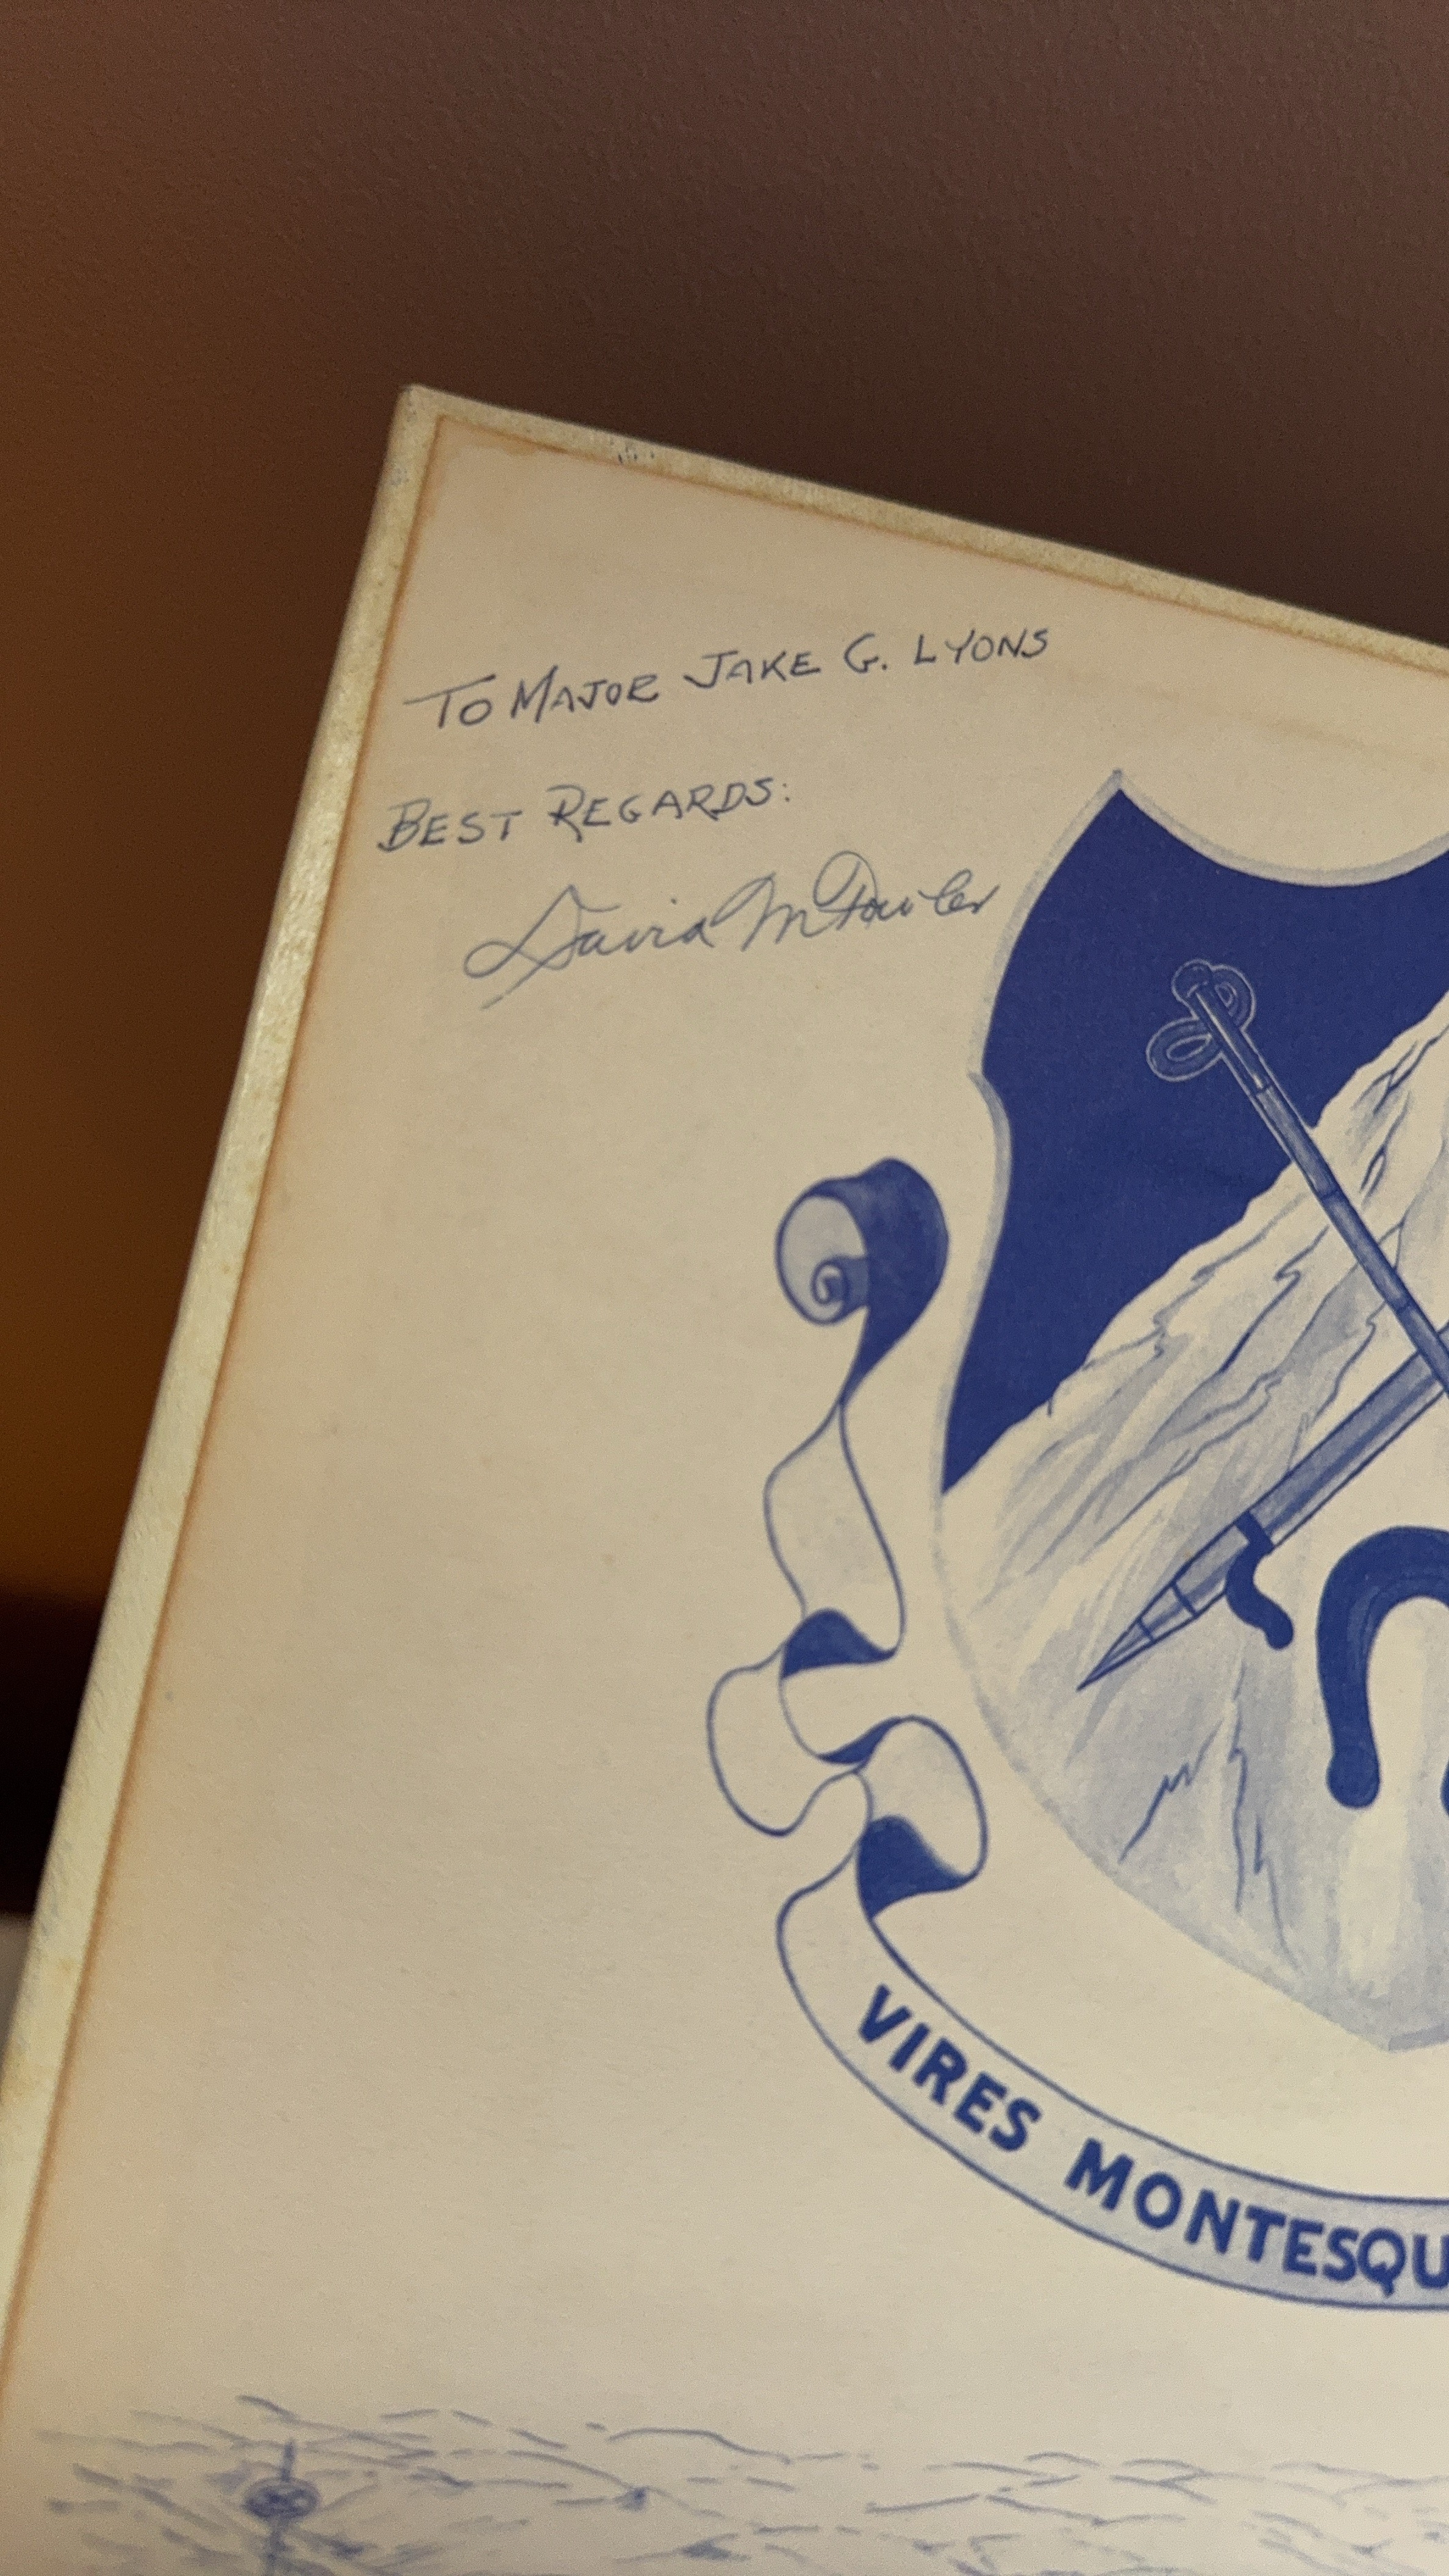 TO MAJOR JAKE G. LYONS
BEST REGARDS:
David M Fowler
VIRES MONTESQU